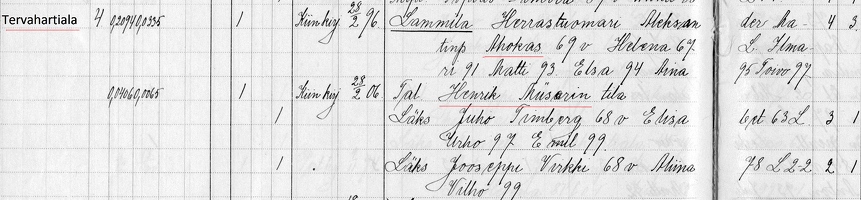 Tervahartiala 4 0,2094 0,0335 1 Kiinkirj 28/2 96. Sammula Herrastuomari Aleksan der Ma- 4 3
tinp Ahokas 69 v Helena 67. L. Ilma-
ri 91 Matti 93. Elsa 94 Aina 95 Toivo 97.
0,0406 0,0065 1 Kiinkirj 28/2 06. Tal Henrik Müsarin tila
1 Läks Juho Timberg 68 v Elisa bet 63 L 3 1
Urho 97. Emil 99.
1 Läks Jooseppi Virkki 68 v Miina 78 L 2-2 2 1
Vilho 99